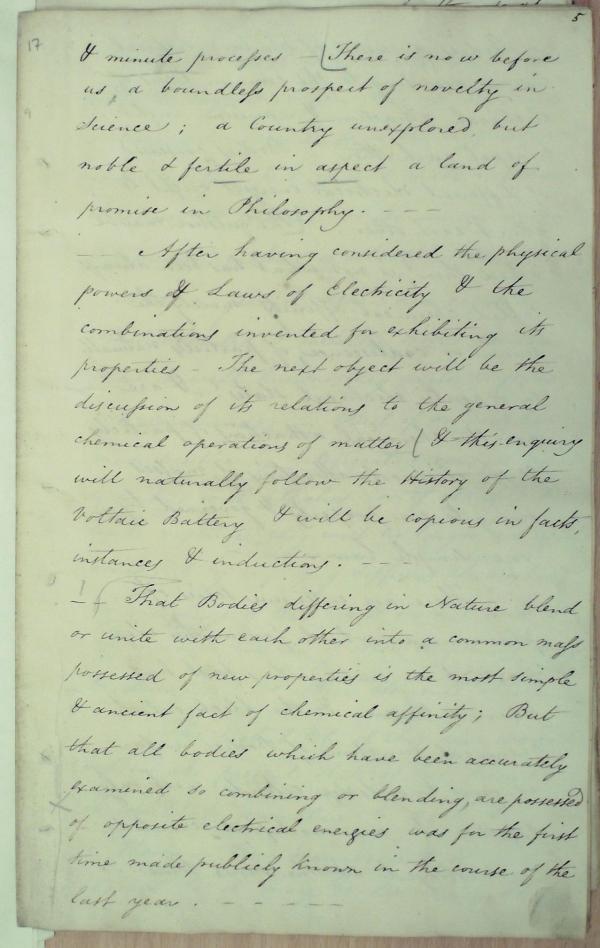 5
17
& minute processes – (There is now before
us, a boundless prospect of novelty in
Science; a Country unexplored, but
noble & fertile in aspect a land of
promise in Philosophy. – – –
– – After having considered the physical
powers & Laws of Electricity & the
combinations invented for exhibiting its
properties – The next object will be the
discussion of its relations to the general
chemical operations of matter ( & this enquiry
will naturally follow the History of the
Voltaic Battery & will be copious in facts,
instances & inductions. – – –
– ( That Bodies differing in Nature blend
or unite with each other into a common mass
possessed of new properties is the most simple
& ancient fact of chemical affinity; But
that all bodies which have been accurately
examined so combining or blending, are possessed
of opposite electrical energies was for the first
time made publicly known in the course of the
last year. – – – – –